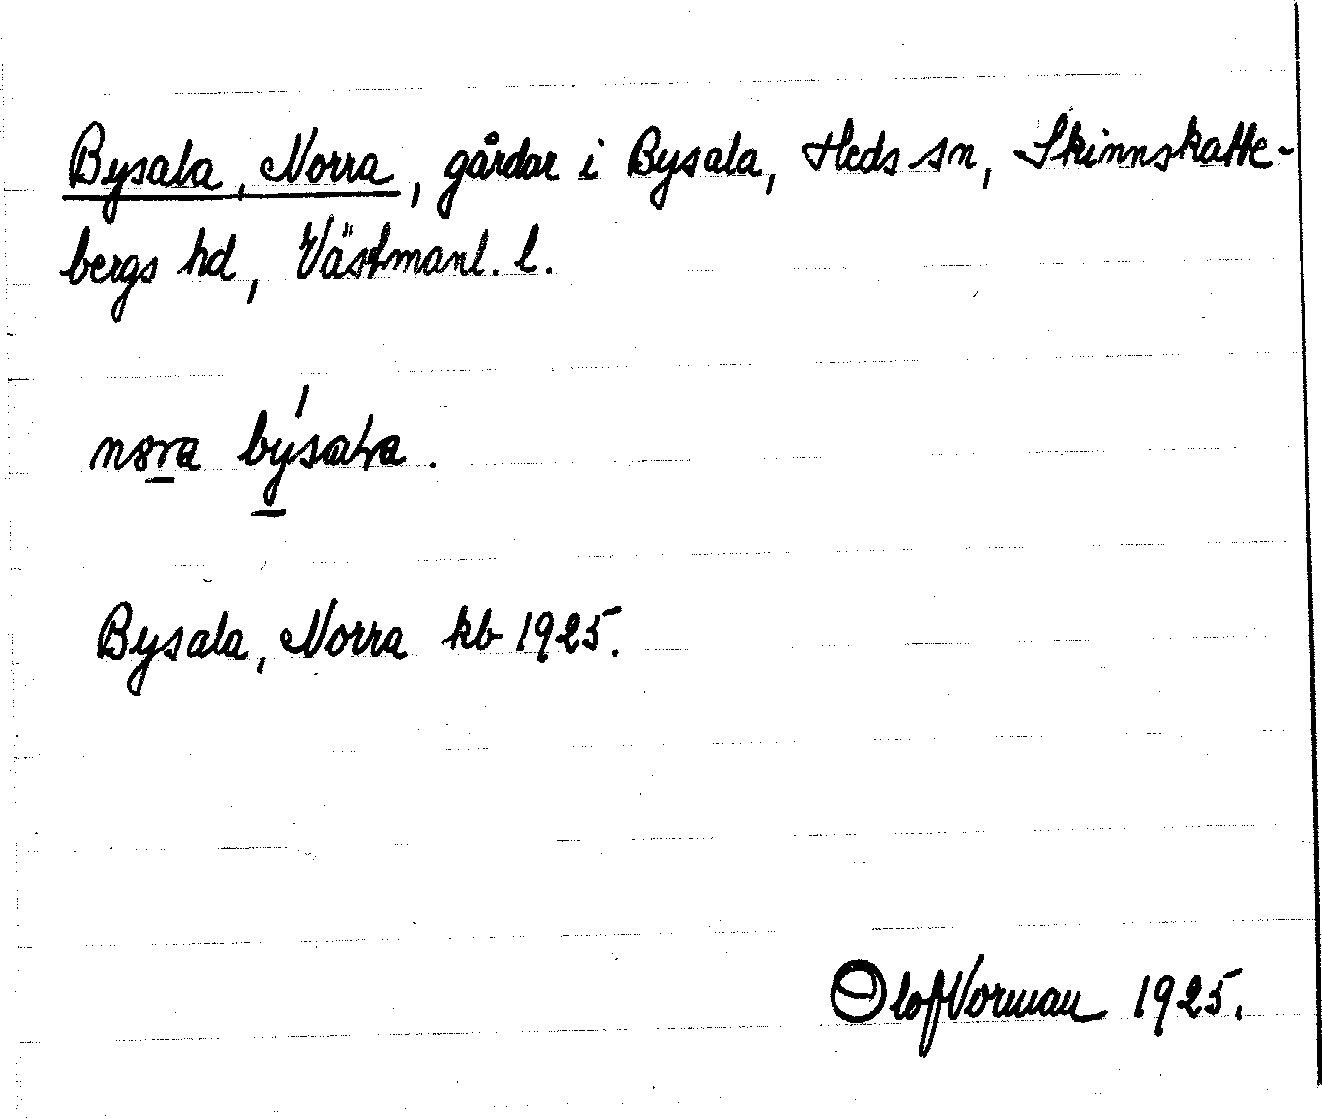 Bysala, Norra, gårdar i Bysala, Heds sn, Skinnskatte-
bergs hd, Västmanl. l.
Bysala, Norra kb 1925.
Olof Vorman 1925.